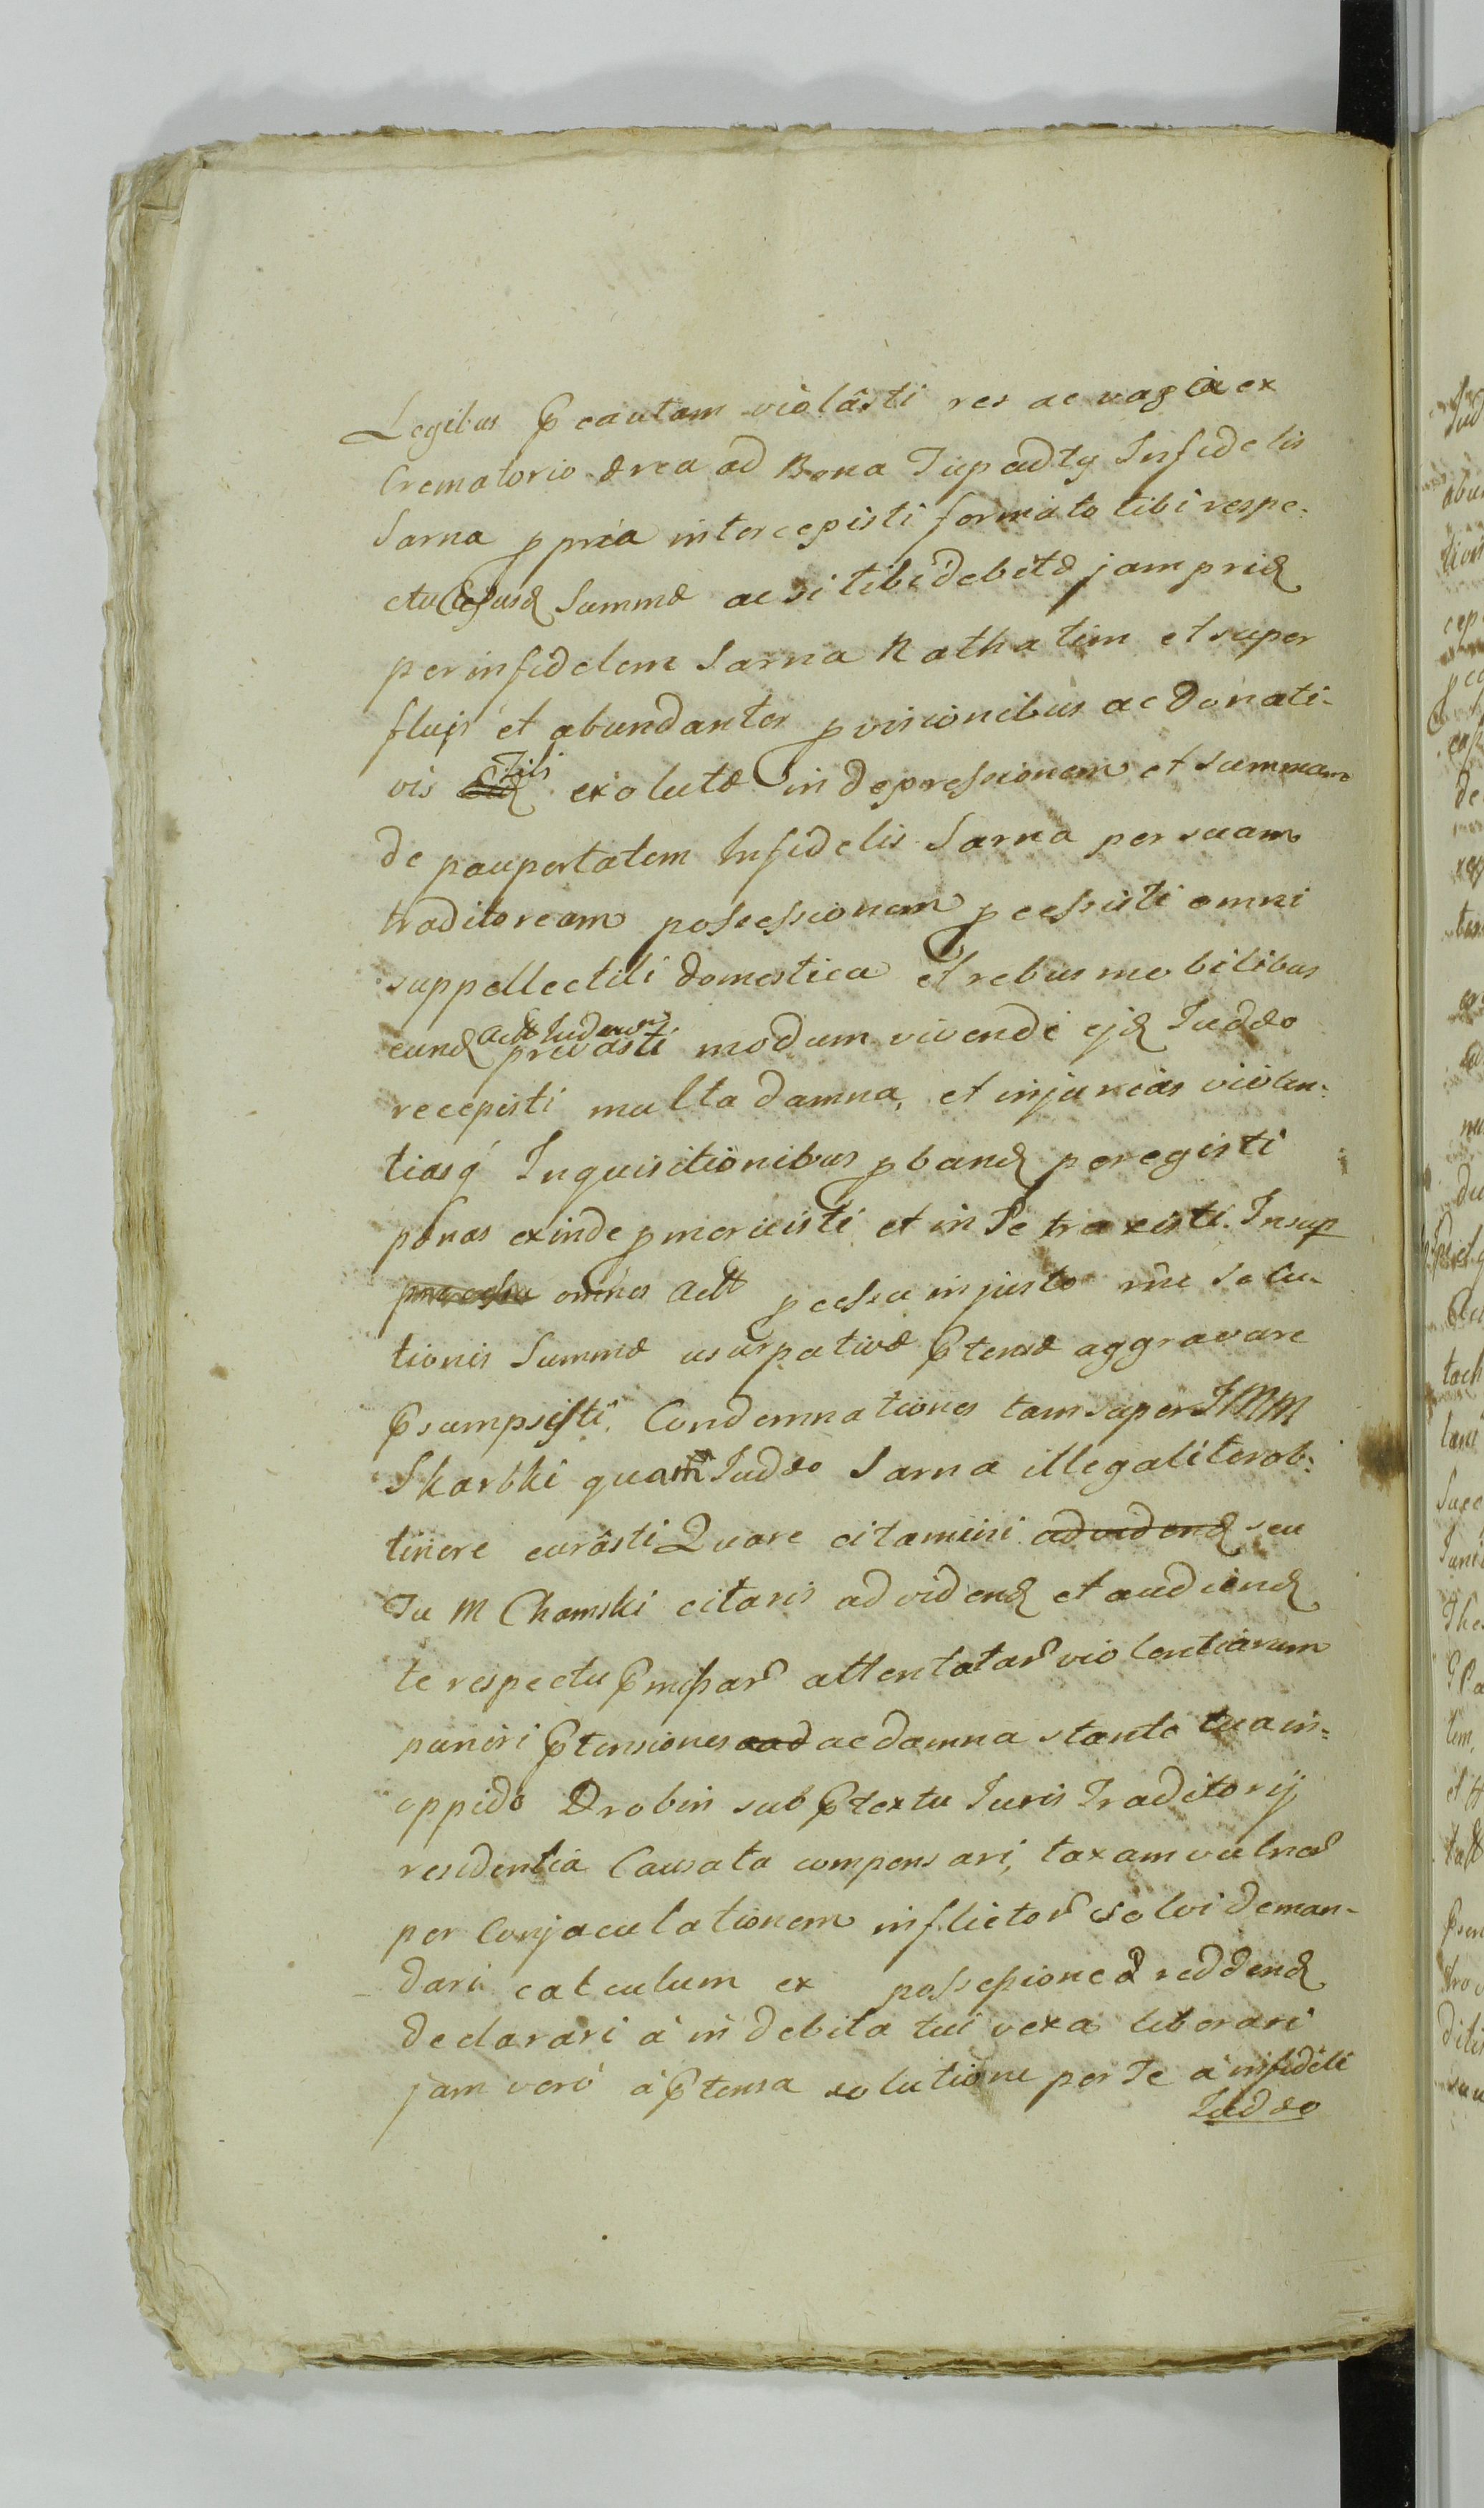 Legibus Pcautam violâsti res ac vasa ex
Crematorio ærea ad Bona Tupadły Infidelis
Sarna ppria intercepisti formato tibi respe-
ctu ejusd Summæ ac si tibi debitæ jam prid
per infidelem Sarna Rathatim et super
fluis et abundantes pvisionibus ac Donati-
vis Tibi exolutæ in depressionem et summam
depaupertatem Infidelis Sarna per suam
traditoream possessionem pcessisti omni
suppellectili domestica et rebus mobilibus
eund Actt Judæum privasti modum vivendi ejd Judæo
recepisti multa damna, et injurias violen-
tiasq Inquisitionibus pband peregisti
pænas exinde pmeruisti et in Te traxisti. Insup
processu omnes Actt pcessu injusto rñe Solu-
tionis Summæ usurpativæ Ptensæ aggravare
Psumpsisti. Condemnationes tam super JMM
Skarbki quam Judæo Sarna illegaliter ob-
tinere curâsti Quare citamini ad vidend seu
Tu M Chamski citaris ad vidend et audiend
te respectu Pmissar attentatar violentiarum
puniri Ptensiones aad ac damna stante tua in
oppido Drobin sub Ptextu Juris Traditorij
residentia Causata compensari, taxam vulner
per Conjaculationem inflictor solvi deman-
dari calculum ex possessione reddend
declarari à indebita tui vexa liberari
jam veró à Ptensa solutione per Te à infideli
Judæo